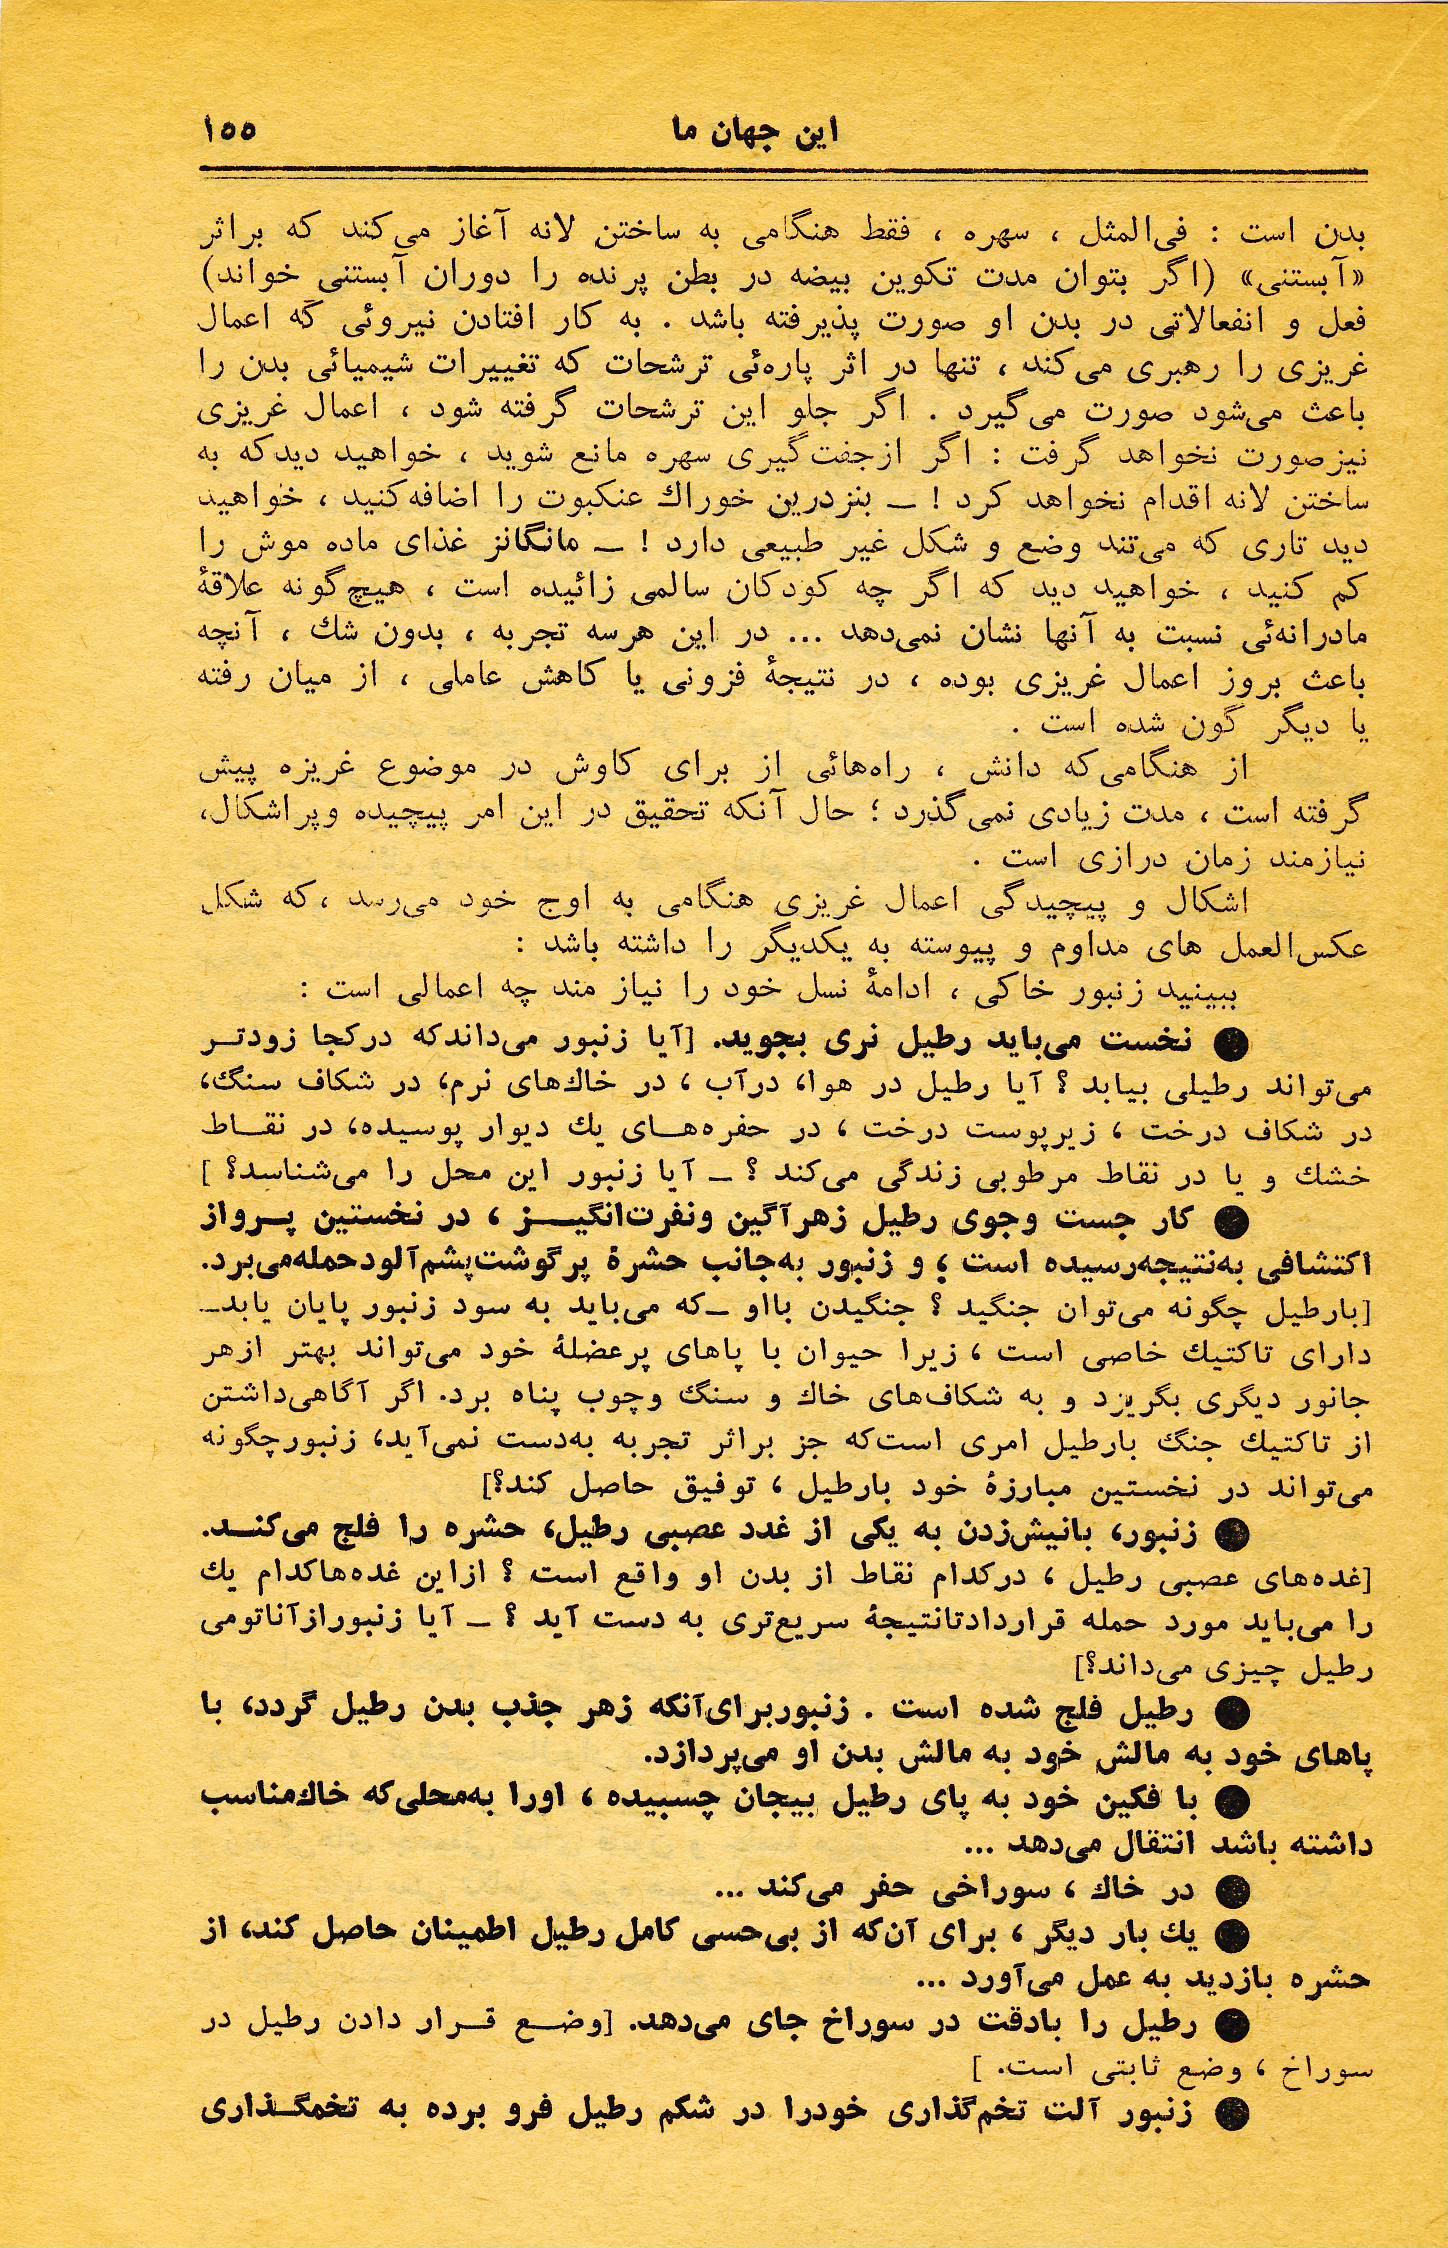 این جهان ما ۱۵۵
بدن است : فی‌المثل ، سهره ، فقط هنگامی به ساختن لانه آغاز می‌کند که براثر
«آبستنی» (اگر بتوان مدت تکوین بیضه در بطن پرنده را دوران آبستنی خواند)
فعل و انفعالاتی در بدن او صورت پذیرفته باشد . به کار افتادن نیروئی که اعمال
غریزی را رهبری می‌کند ، تنها در اثر پاره‌ئی ترشحات که تغییرات شیمیائی بدن را
باعث می‌شود صورت می‌گیرد . اگر جلو این ترشحات گرفته شود ، اعمال غریزی
نیز صورت نخواهد گرفت : اگر از جفت‌گیری سهره مانع شوید ، خواهید دید که به
ساختن لانه اقدام نخواهد کرد ! — بنزدرین خوراك عنکبوت را اضافه کنید ، خواهید
دید تاری که می‌تند وضع و شکل غیر طبیعی دارد ! — مانگانز غذای ماده موش را
کم کنید ، خواهید دید که اگر چه کودکان سالمی زائیده است ، هیچ‌گونه علاقهٔ
مادرانه‌ئی نسبت به آنها نشان نمی‌دهد ... در این هرسه تجربه ، بدون شك ، آنچه
باعث بروز اعمال غریزی بوده ، در نتیجهٔ فزونی یا کاهش عاملی ، از میان رفته
یا دیگر گون شده است .
از هنگامی‌که دانش ، راه‌هائی از برای کاوش در موضوع غریزه پیش
گرفته است ، مدت زیادی نمی‌گذرد ؛ حال آنکه تحقیق در این امر پیچیده وپراشکال،
نیازمند زمان درازی است .
اشکال و پیچیدگی اعمال غریزی هنگامی به اوج خود می‌رسد ، که شکل
عکس‌العمل های مداوم و پیوسته به یکدیگر را داشته باشد :
ببینید زنبور خاکی ، ادامهٔ نسل خود را نیاز مند چه اعمالی است :
● نخست می‌باید رطیل نری بجوید. [آیا زنبور می‌داندکه درکجا زودتر
می‌تواند رطیلی بیابد ؟ آیا رطیل در هوا، درآب ، در خاك‌های نرم، در شکاف سنگ،
در شکاف درخت ، زیرپوست درخت ، در حفره‌های یك دیوار پوسیده، در نقاط
خشك و یا در نقاط مرطوبی زندگی می‌کند ؟ — آیا زنبور این محل را می‌شناسد؟ ]
● کار جست وجوی رطیل زهرآگین ونفرت‌انگیز ، در نخستین پرواز
اکتشافی به‌نتیجه‌رسیده است ؛ و زنبور به‌جانب حشرهٔ پرگوشت‌پشم‌آلودحمله‌می‌برد.
[بارطیل چگونه می‌توان جنگید ؟ جنگیدن بااو —که می‌باید به سود زنبور پایان یابد—
دارای تاکتیك خاصی است ، زیرا حیوان با پاهای پرعضلهٔ خود می‌تواند بهتر ازهر
جانور دیگری بگریزد و به شکاف‌های خاك و سنگ وچوب پناه برد. اگر آگاهی‌داشتن
از تاکتیك جنگ بارطیل امری است‌که جز براثر تجربه به‌دست نمی‌آید، زنبورچگونه
می‌تواند در نخستین مبارزهٔ خود بارطیل ، توفیق حاصل کند؟]
● زنبور، بانیش‌زدن به یکی از غدد عصبی رطیل، حشره را فلج می‌کند.
[غده‌های عصبی رطیل ، درکدام نقاط از بدن او واقع است ؟ ازاین غده‌هاکدام یك
را می‌باید مورد حمله قراردادتانتیجهٔ سریع‌تری به دست آید ؟ — آیا زنبورازآناتومی
رطیل چیزی می‌داند؟]
● رطیل فلج شده است . زنبوربرای‌آنکه زهر جذب بدن رطیل گردد، با
پاهای خود به مالش خود به مالش بدن او می‌پردازد.
● با فکین خود به پای رطیل بیجان چسبیده ، اورا به‌محلی‌که خاك‌مناسب
داشته باشد انتقال می‌دهد ...
● در خاك ، سوراخی حفر می‌کند ...
● یك بار دیگر ، برای آن‌که از بی‌حسی کامل رطیل اطمینان حاصل کند، از
حشره بازدید به عمل می‌آورد ...
● رطیل را بادقت در سوراخ جای می‌دهد. [وضع قرار دادن رطیل در
سوراخ ، وضع ثابتی است. ]
● زنبور آلت تخم‌گذاری خودرا در شکم رطیل فرو برده به تخمگذاری